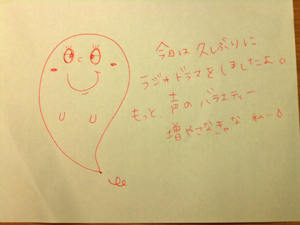 今日は 久しぶりに
ラジオドラマをしましたよ。
もっと、声の バラエティー
増やさなきゃな ねー。